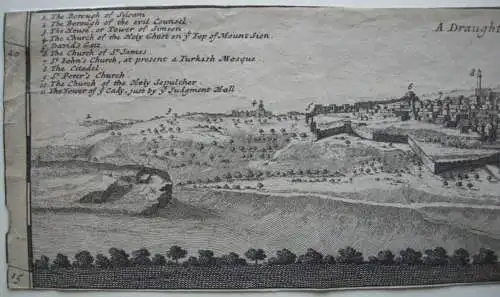 1. The Borough of Siloam
2. The Borough of the evil Counsel
3. The House, or Tower of Simeon
4. The Church of the Holy Ghost on yͤ Top of Mount Sion.
5. Davids Gate
6. The Church of Sᵗ James
7. Sᵗ John's Church, at present a Turkish Mosque
8. The Citadel
9. Sᵗ Peter's Church
10. The Church of the Holy Sepulcher
11. The Tower of yͤ Lady, just by yͤ Judgment Hall
A Draught